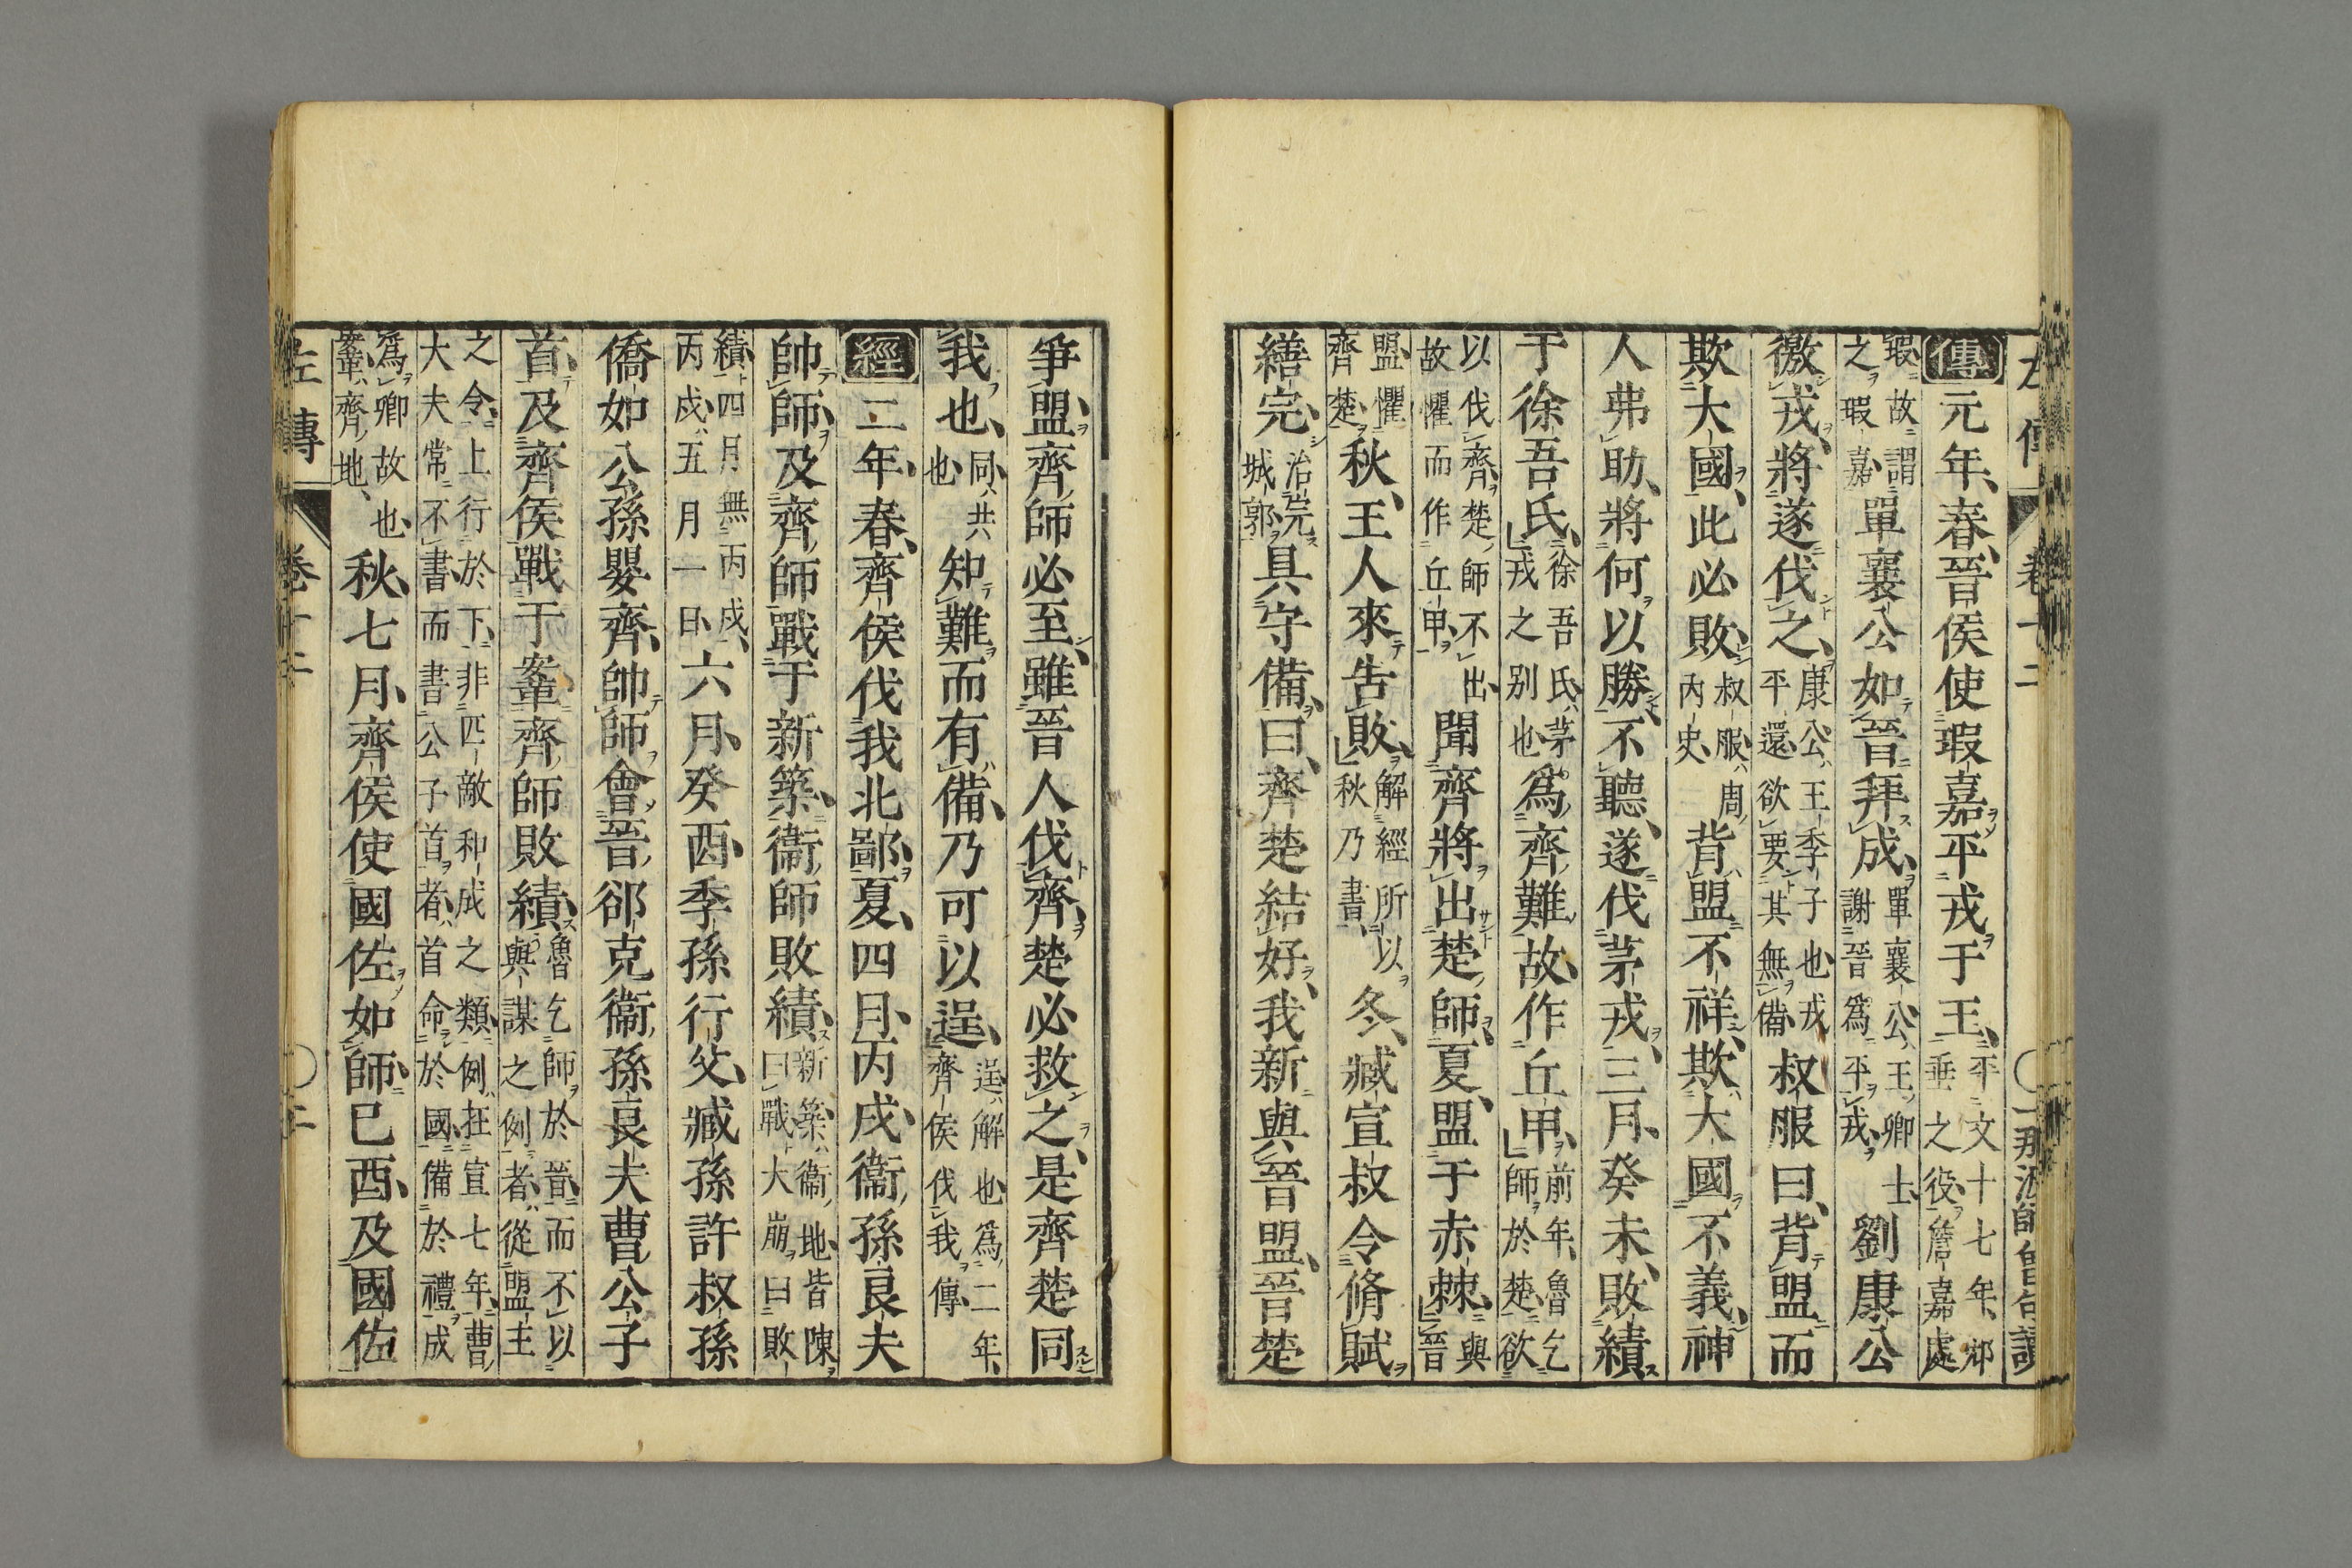 傳元年、春、晉侯使瑕嘉平戎于王、平文十七年、邥垂之役、詹嘉處
瑕、故謂之瑕嘉、單襄公如晉拜成、單襄公、王卿士、謝晉爲平戎、劉康公
徼戎、將遂伐之、康公、王季子也、戎平還、欲要其無備、叔服曰、背盟而
欺大國、此必敗、叔服、周內史、背盟不祥、欺大國、不義、神
人弗助、將何以勝、不聽、遂伐茅戎、三月、癸未、敗績
于徐吾氏、徐吾氏、茅戎之別也、爲齊難故、作丘甲、前年、魯乞師於楚、欲
以伐齊、楚師不出、故懼而作丘甲、聞齊將出楚師、夏、盟于赤棘、與晉
盟、懼齊楚、秋、王人來告敗、解經所以秋乃書、冬、臧宣叔令脩賦
繕完、治完城郭、具守備、曰、齊楚結好、我新與晉盟、晉楚
爭盟、齊師必至、雖晉人伐齊、楚必救之、是齊楚同
我也、同、共也、知難而有備、乃可以逞、逞、解也、爲二年、齊侯伐我傳
經二年、春、齊侯伐我北鄙、夏、四月、丙戌、衞孫良夫
帥師、及齊師戰于新築、衞師敗績、新築、衞地、皆陳曰戰、大崩曰敗
績、四月無丙戌、丙戌、五月一日、六月、癸酉、季孫行父、臧孫許叔孫
僑如公孫嬰齊、帥師會晉郤克衞孫良夫曹公子
首、及齊侯戰于鞌、齊師敗績、魯乞師於晉、而不以與謀之例者、從盟主
之令、上行於下、非匹敵和成之類、例在宣七年、曹大夫常不書、而書公子首者、首命於國、備於禮、成
爲卿故也、鞌、齊地、秋、七月、齊侯使國佐如師、己酉、及國佐
左傳 卷十二 〇二